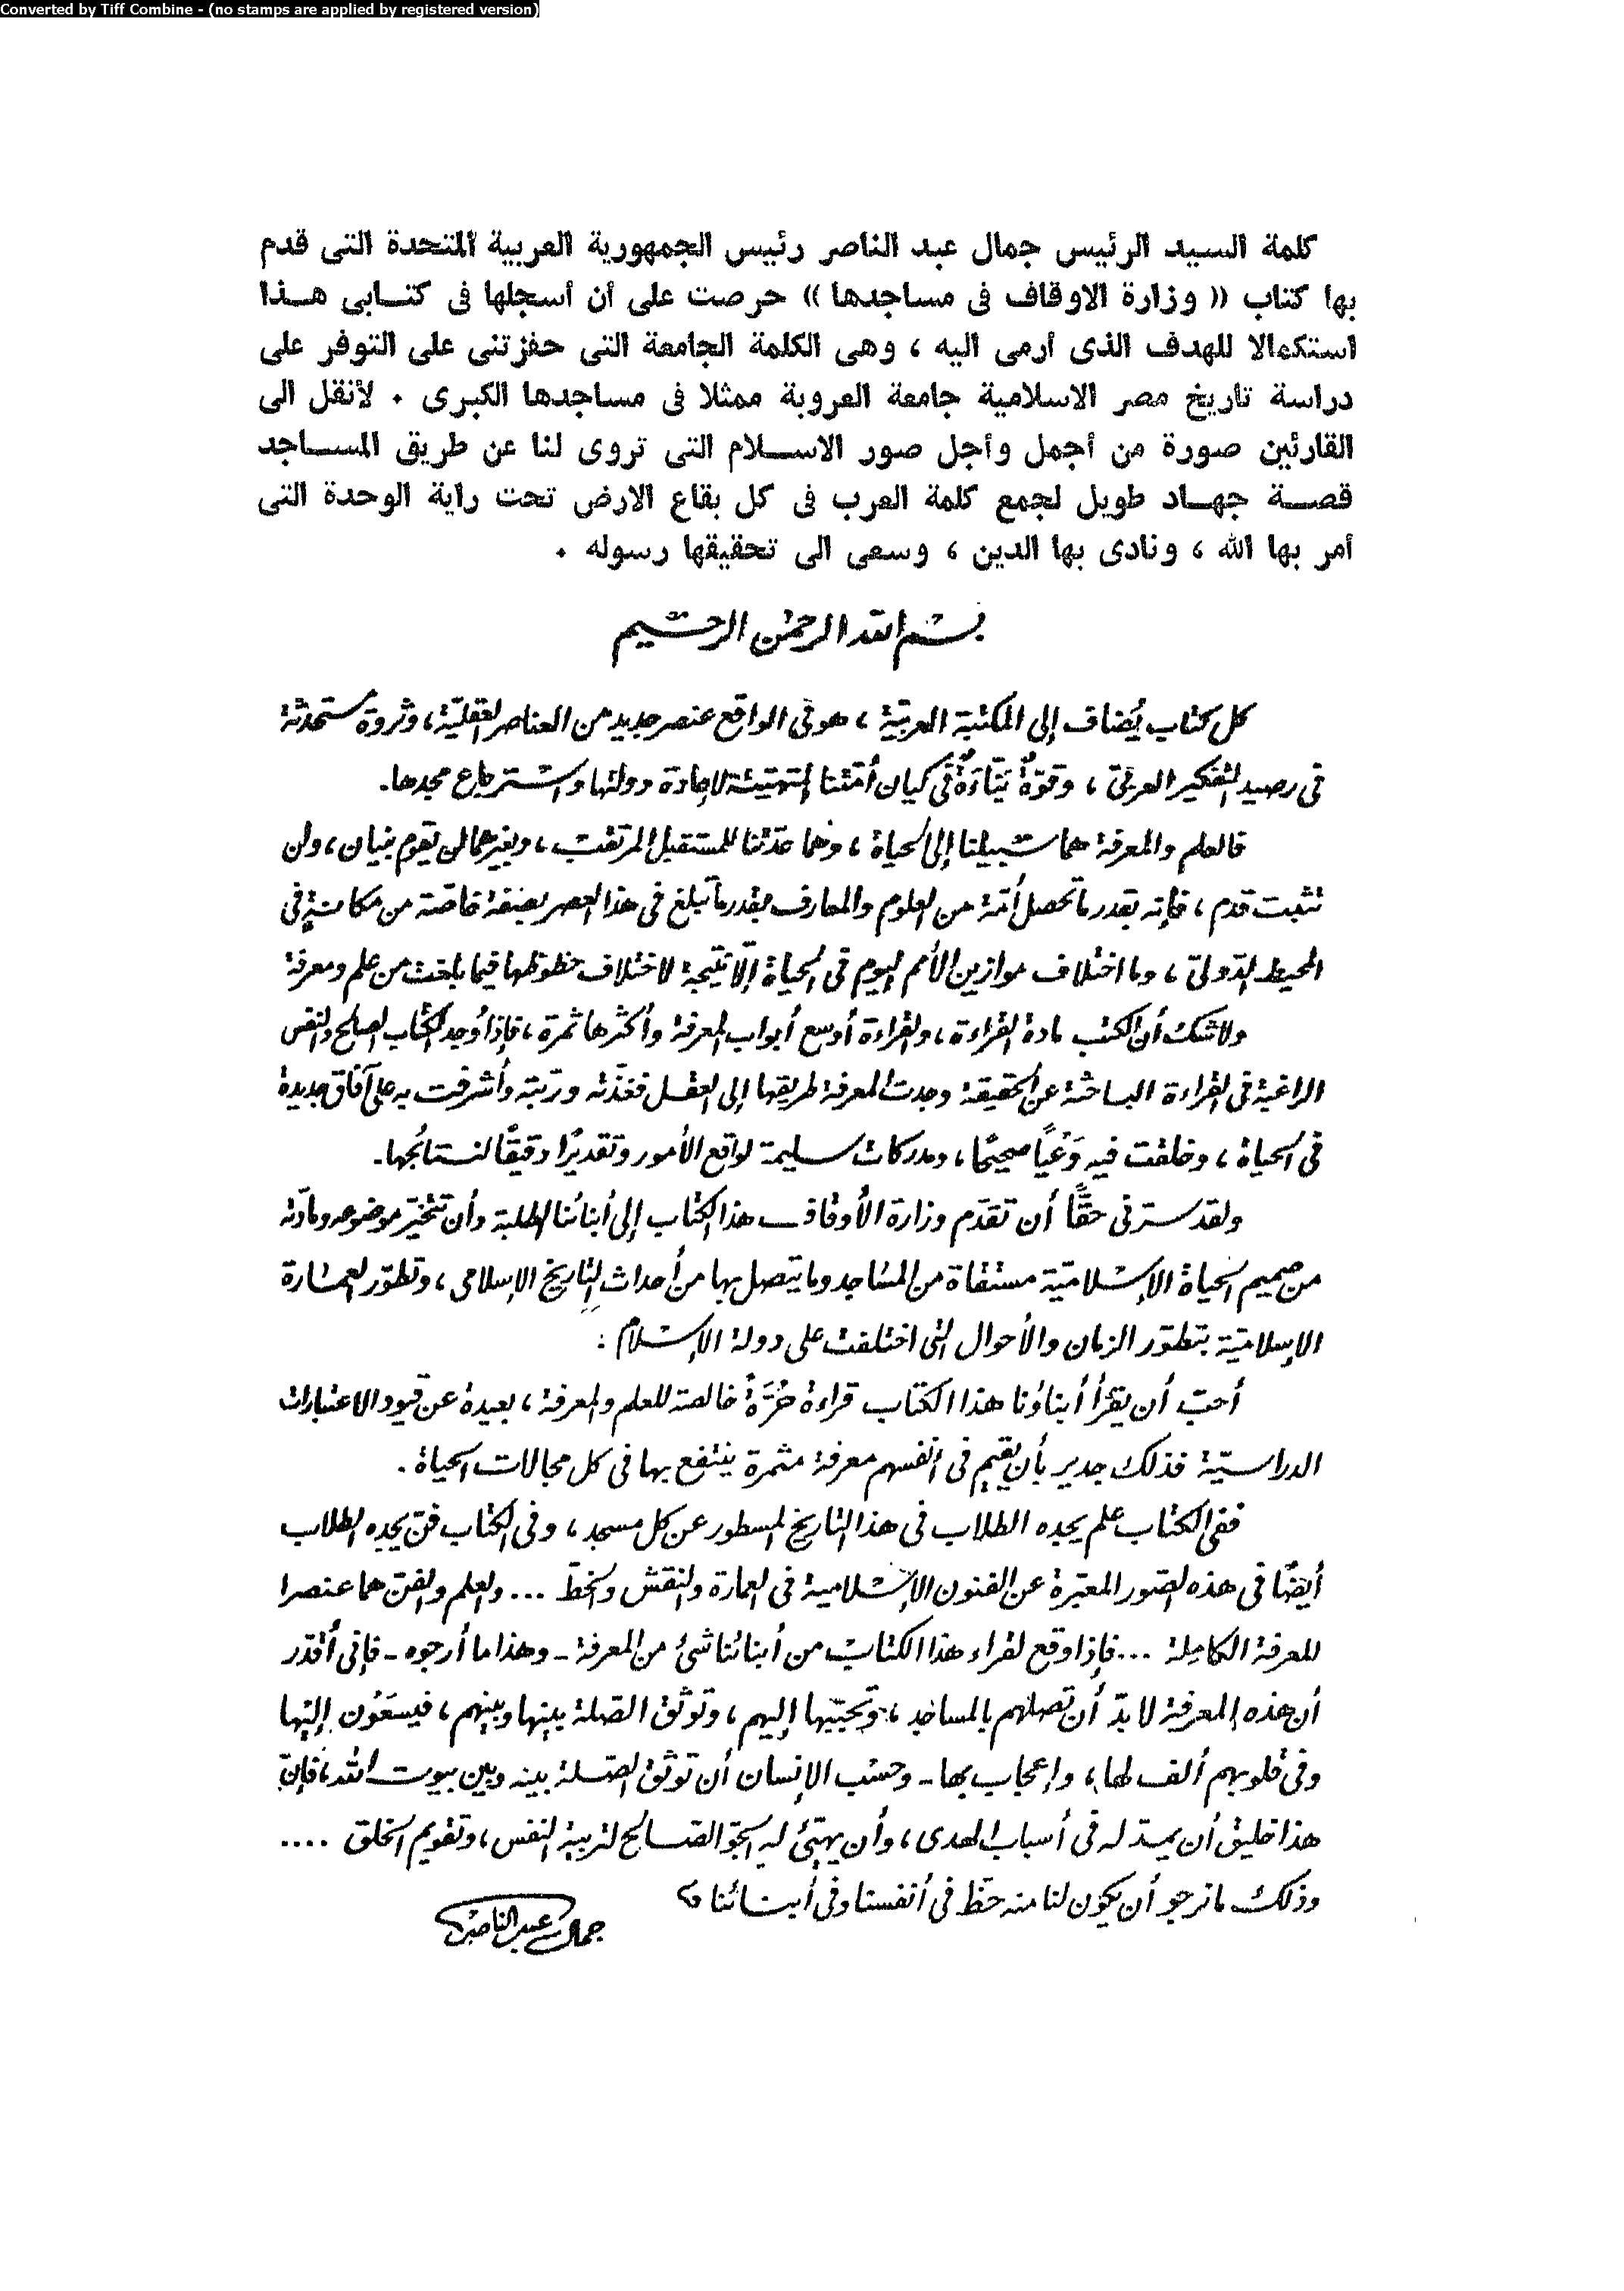 Converted by Tiff Combine - (no stamps are applied by registered version)
كلمة السيد الرئيس جمال عبد الناصر رئيس الجمهورية العربية المتحدة التى قدم
بها كتاب (( وزارة الاوقاف فى مساجدها )) حرصت على أن أسجلها فى كتـابى هـذا
استكمالا للهدف الذى أرمى اليه ، وهى الكلمة الجامعة التى حفزتنى على التوفر على
دراسة تاريخ مصر الاسلامية جامعة العروبة ممثلا فى مساجدها الكبرى . لأنقل الى
القارئين صورة من أجمل وأجل صور الاسـلام التى تروى لنا عن طريق المسـاجد
قصـة جهـاد طويل لجمع كلمة العرب فى كل بقاع الارض تحت راية الوحدة التى
أمر بها الله ، ونادى بها الدين ، وسعى الى تحقيقها رسوله .
بسم الله الرحمن الرحيم
كل كتاب يُضاف إلى المكتبة العربيّة ، هو فى الواقع عنصر جديد من العناصر العقليّة ، وثروة مستحدثة
فى رصيد التفكير العربىّ ، وقوّةٌ بَنّاءَةٌ فى كيان أُمّتنا المتهيّئة لإعادة دولتها واسترجاع مجدها .
فالعلم والمعرفة هما سبيلنا إلى الحياة ، وهما عدّتنا للمستقبل المرتقب ، وبغيرهما لن يقوم بنيان ، ولن
تثبت قدم ، فإنه بقدر ما تحصل أمّة من العلوم والمعارف بقدر ما تبلغ فى هذا العصر بصفة خاصّة من مكانةٍ فى
المحيط الدّولىّ ، وما اختلاف موازين الأمم اليوم فى الحياة إلّا نتيجة لاختلاف حظوظها فيما بلغت من علم ومعرفة
ولا شك أن الكتب مادة القراءة ، والقراءة أوسع أبواب المعرفة وأكثرها ثمرة ، فإذا وُجد الكتاب الصالح والنفس
الراغبة فى القراءة الباحثة عن الحقيقة وجدت المعرفة طريقها إلى العقل فغذّته وربّته وأشرقت به على آفاق جديدة
فى الحياة ، وخلقت فيه وَعْيًا صحيحًا ، ومدركات سليمة لواقع الأمور وتقديرًا دقيقًا لنتائجها .
ولقد سرنى حقًّا أن تقدّم وزارة الأوقاف هذا الكتاب إلى أبنائنا الطلبة وأن تتخيّر موضوعه ومادّته
من صميم الحياة الإسلاميّة مستقاة من المساجد وما يتصل بها من أحداث التاريخ الإسلامى ، وتطوّر العمارة
الإسلاميّة بتطوّر الزمان والأحوال التى اختلفت على دولة الإسلام :
أحبّ أن يقرأ أبناؤنا هذا الكتاب قراءة حُرّةً خالصة للعلم والمعرفة ، بعيدة عن قيود الاعتبارات
الدراسيّة فذلك جدير بأن يقيم فى أنفسهم معرفة مثمرة ينتفع بها فى كل مجالات الحياة .
ففى الكتاب علم يجده الطلاب فى هذا التاريخ المسطور عن كل مسجد ، وفى الكتاب فنّ يجده الطلاب
أيضًا فى هذه الصّور المعبّرة عن الفنون الإسلامية فى العمارة والنقش والخطّ ... والعلم والفنّ هما عنصرا
المعرفة الكاملة ... فإذا وقع لقراء هذا الكتاب من أبنائنا شىء من المعرفة - وهذا ما أرجوه - فإنى أقدّر
أن هذه المعرفة لا بدّ أن تصلهم بالمساجد ، وتحبّبها إليهم ، وتوثّق الصّلة بينها وبينهم ، فيسعَوْن إليها
وفى قلوبهم ألف لها ، وإعجاب بها - وحسب الإنسان أن توثّق الصّلة بينه وبين بيوت الله ، فإنّ
هذا خليق أن يمدّ له فى أسباب الهدى ، وأن يهيّئ له الجوّ الصّالح لتربية النفس ، وتقويم الخلق ....
وذلك ما نرجو أن يكون لنا منه حظّ فى أنفسنا وفى أبنائنا
جمال عبد الناصر